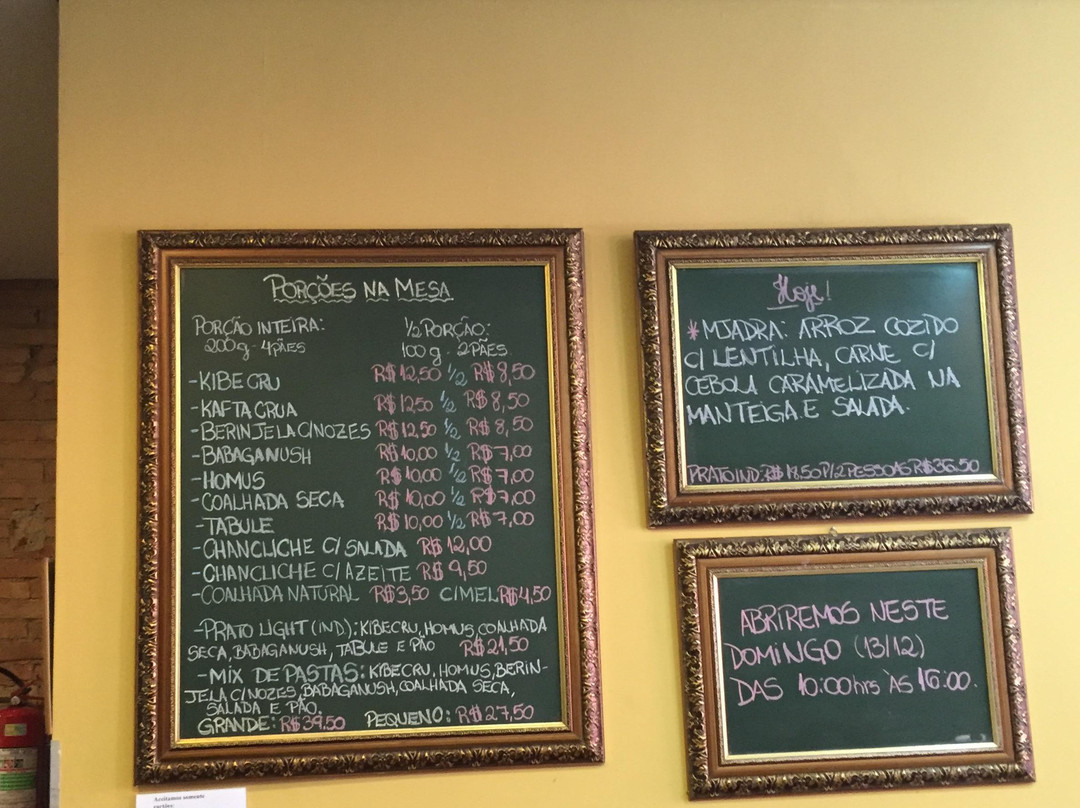 PORÇÕES NA MESA
PORÇÃO INTEIRA: 1/2 PORÇÃO:
200g - 4PÃES 100g - 2PÃES
-KIBE CRU R$12,50 1/2 R$8,50
-KAFTA CRUA R$12,50 1/2 R$8,50
-BERINJELA C/NOZES R$12,50 1/2 R$8,50
-BABAGANUSH R$10,00 1/2 R$7,00
-HOMUS R$10,00 1/2 R$7,00
-COALHADA SECA R$10,00 1/2 R$7,00
-TABULE R$10,00 1/2 R$7,00
-CHANCLICHE C/SALADA R$12,00
-CHANCLICHE C/AZEITE R$9,50
-COALHADA NATURAL R$3,50 C/MEL R$4,50
-PRATO LIGHT (IND): KIBECRU, HOMUS, COALHADA
SECA, BABAGANUSH, TABULE E PÃO R$21,50
-MIX DE PASTAS: KIBECRU, HOMUS, BERIN-
JELA C/NOZES, BABAGANUSH, COALHADA SECA,
SALADA E PÃO.
GRANDE: R$39.50 PEQUENO: R$27,50
Hoje!
*MJADRA: ARROZ COZIDO
C/ LENTILHA, CARNE C/
CEBOLA CARAMELIZADA NA
MANTEIGA E SALADA.
PRATO IND. R$ 18.50 P/2 PESSOAS R$36.50
ABRIREMOS NESTE
DOMINGO (13/12)
DAS 10:00hrs ÀS 16:00.
Aceitamos somente
cartões: